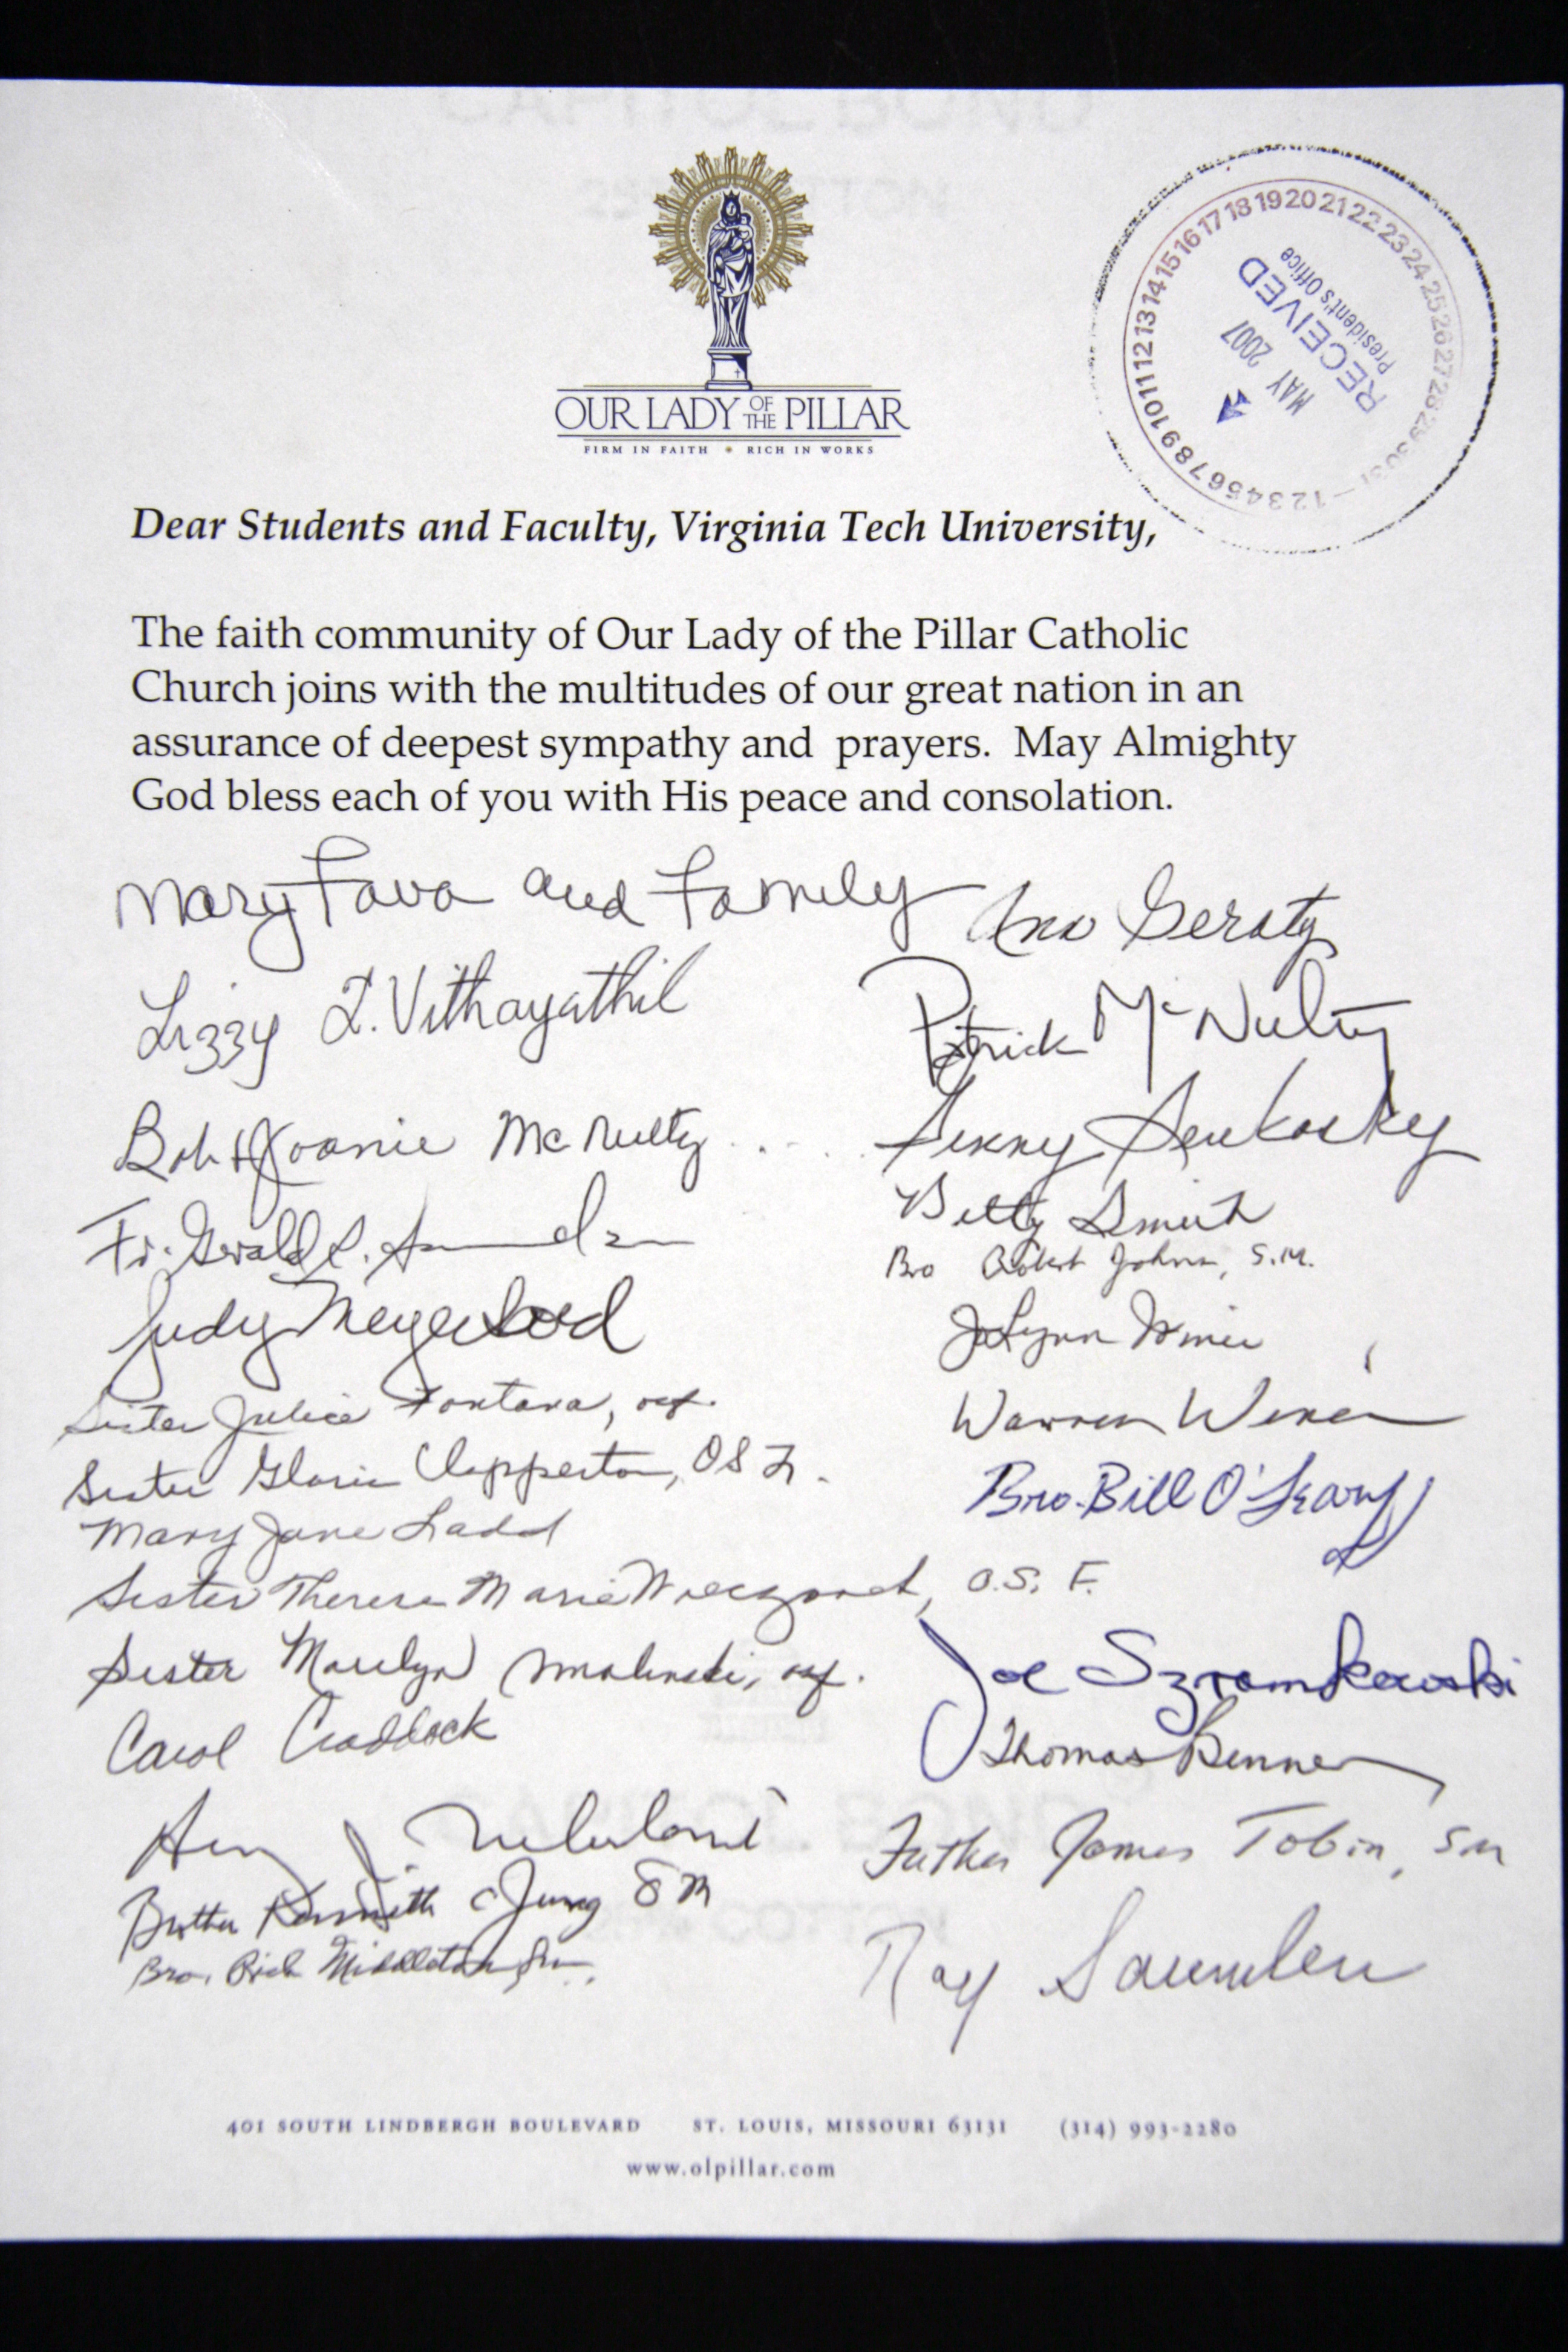 OUR LADY OF THE PILLAR
FIRM IN FAITH • RICH IN WORKS
1 2 3 4 5 6 7 8 9 10 11 12 13 14 15 16 17 18 19 20 21 22 23 24 25 26 27 28 29 30 31
RECEIVED
President's Office
MAY 2007
Dear Students and Faculty, Virginia Tech University,
The faith community of Our Lady of the Pillar Catholic
Church joins with the multitudes of our great nation in an
assurance of deepest sympathy and prayers. May Almighty
God bless each of you with His peace and consolation.
Mary Fava and Family
Lizzy T. Vithayathil
Bob & Joanie McNulty
Fr. Gerald
Judy
Sister Julice Fontana, osf.
Sister Gloria Clapperton, OSF.
Mary Jane Ladd
Sister Therese Marie O.S.F.
Sister Marilyn osf.
Carol Craddock
Brother Kenneth Jung SM
Bro. Rick Middleton, SM
Geraty
Patrick McNulty
Betty Smith
Bro Robert Johns, S.M.
JoLynn
Warren
Bro. Bill O'Leary
Joe Szromkowski
Thomas Renner
Father James Tobin, SM
Ray Saunders
401 SOUTH LINDBERGH BOULEVARD ST. LOUIS, MISSOURI 63131 (314) 993-2280
www.olpillar.com